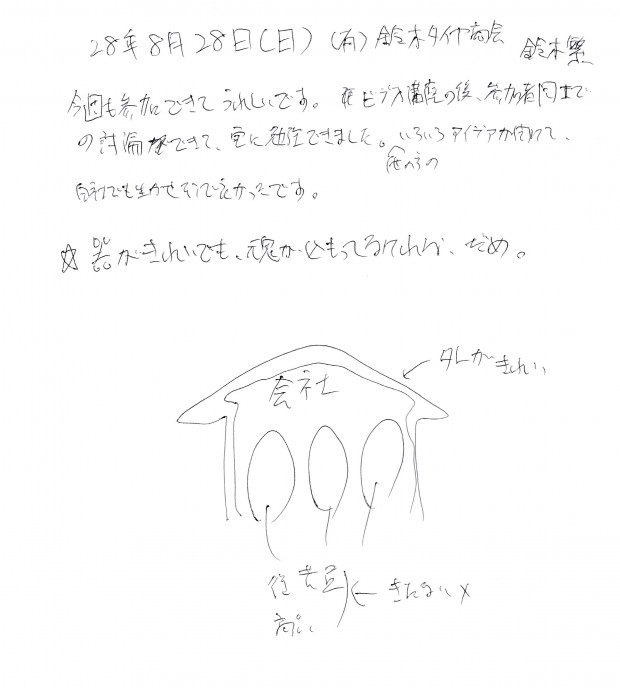 28年8月28日(日) (有)鈴木タイヤ商会 鈴木繁
今回も参加できてうれしいです。ビデオ講座の後、参加者同士で
の討論ができて、更に勉強できました。いろいろアイデアが出てて、
自社でも生かせそうで良かったです。
☆器がきれいでも、魂がこもってなければ、だめ。
会社
外がきれい
従業員 ← きたない×